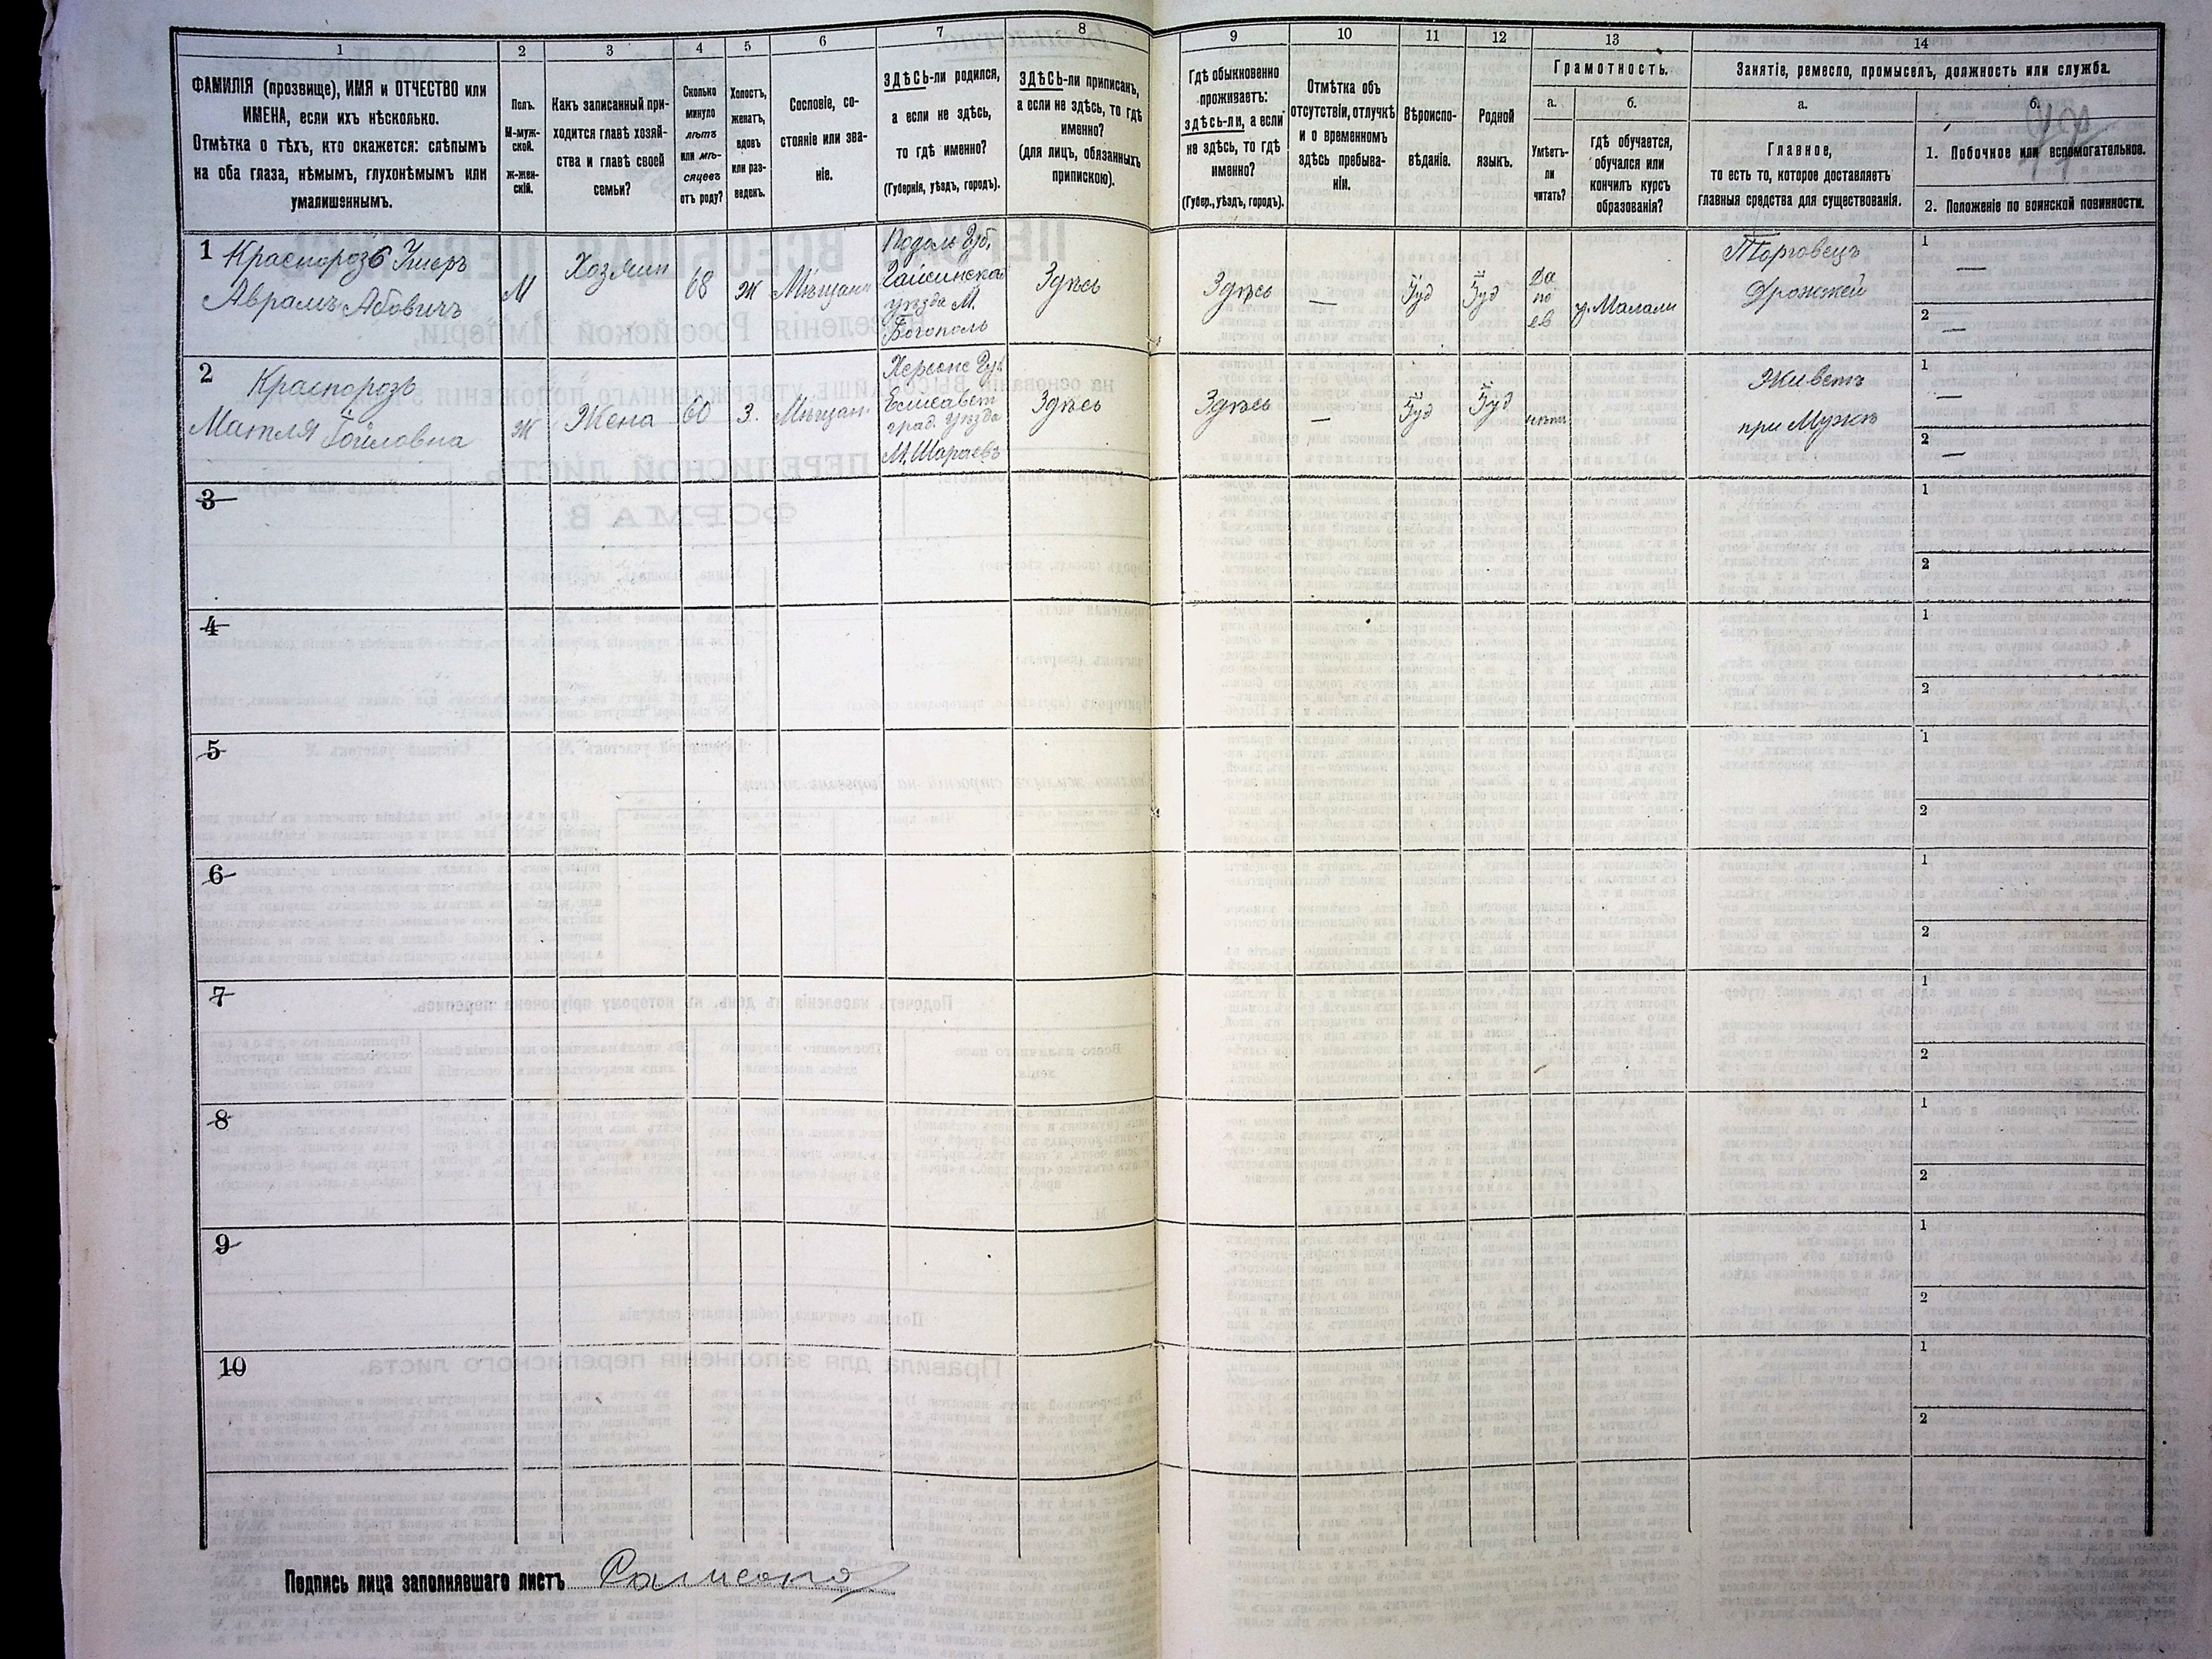 1
2
3
4
5
6
7
8
9
10
11
12
13
14
ФАМИЛІЯ (прозвище), ИМЯ и ОТЧЕСТВО или
ИМЕНА, если ихъ нѣсколько.
Отмѣтка о тѣхъ, кто окажется: слѣпымъ
на оба глаза, нѣмымъ, глухонѣмымъ или
умалишеннымъ.
Полъ.
М-муж-
ской.
Ж-жен-
скій.
Какъ записанный при-
ходится главѣ хозяй-
ства и главѣ своей
семьи?
Сколько
минуло
лѣтъ
или мѣ-
сяцевъ
отъ роду?
Холостъ,
женатъ,
вдовъ
или раз-
веденъ.
Сословіе, со-
стояніе или зва-
ніе.
ЗДѢСЬ-ли родился,
а если не здѣсь,
то гдѣ именно?
(Губернія, уѣздъ, городъ).
ЗДѢСЬ-ли приписанъ,
а если не здѣсь, то гдѣ
именно?
(для лицъ, обязанныхъ
припиской).
Гдѣ обыкновенно
проживаетъ:
здѣсь-ли, а если
не здѣсь, то гдѣ
именно?
(Губер., уѣздъ, городъ).
Отмѣтка объ
отсутствіи, отлучкѣ
и о временномъ
здѣсь пребыва-
ніи.
Вѣроиспо-
вѣданіе.
Родной
языкъ.
Грамотность.
а.
Умѣетъ-
ли
читать?
б.
гдѣ обучается,
обучался или
кончилъ курсъ
образованія?
Занятіе, ремесло, промыселъ, должность или служба.
а.
Главное,
то есть то, которое доставляетъ
главныя средства для существованія.
б.
1. Побочное или вспомогательное.
2. Положеніе по воинской повинности.
1
Краснорозъ Ушеръ
Аврамъ Абовичъ
М
Хозяин
68
Ж
Мѣщан
Подольс Губ.
Гайсинска
уѣзда М.
Богополь
Здѣсь
Здѣсь
—
Іуд
Іуд
да
по
ев
у. Малали
Торговецъ
Дрожжей
1
—
2
—
2
Краснорозъ
Матля Гойловна
Ж
Жена
60
З.
Мѣщан
Херсонс Губ
Елисавет
град. уѣзда
М.
Здѣсь
Здѣсь
—
Іуд
Іуд
нѣтъ
Живетъ
при Мужѣ
1
—
2
—
3
1
2
4
1
2
5
1
2
6
1
2
7
1
2
8
1
2
9
1
2
10
1
2
Подпись лица заполнявшаго листъ